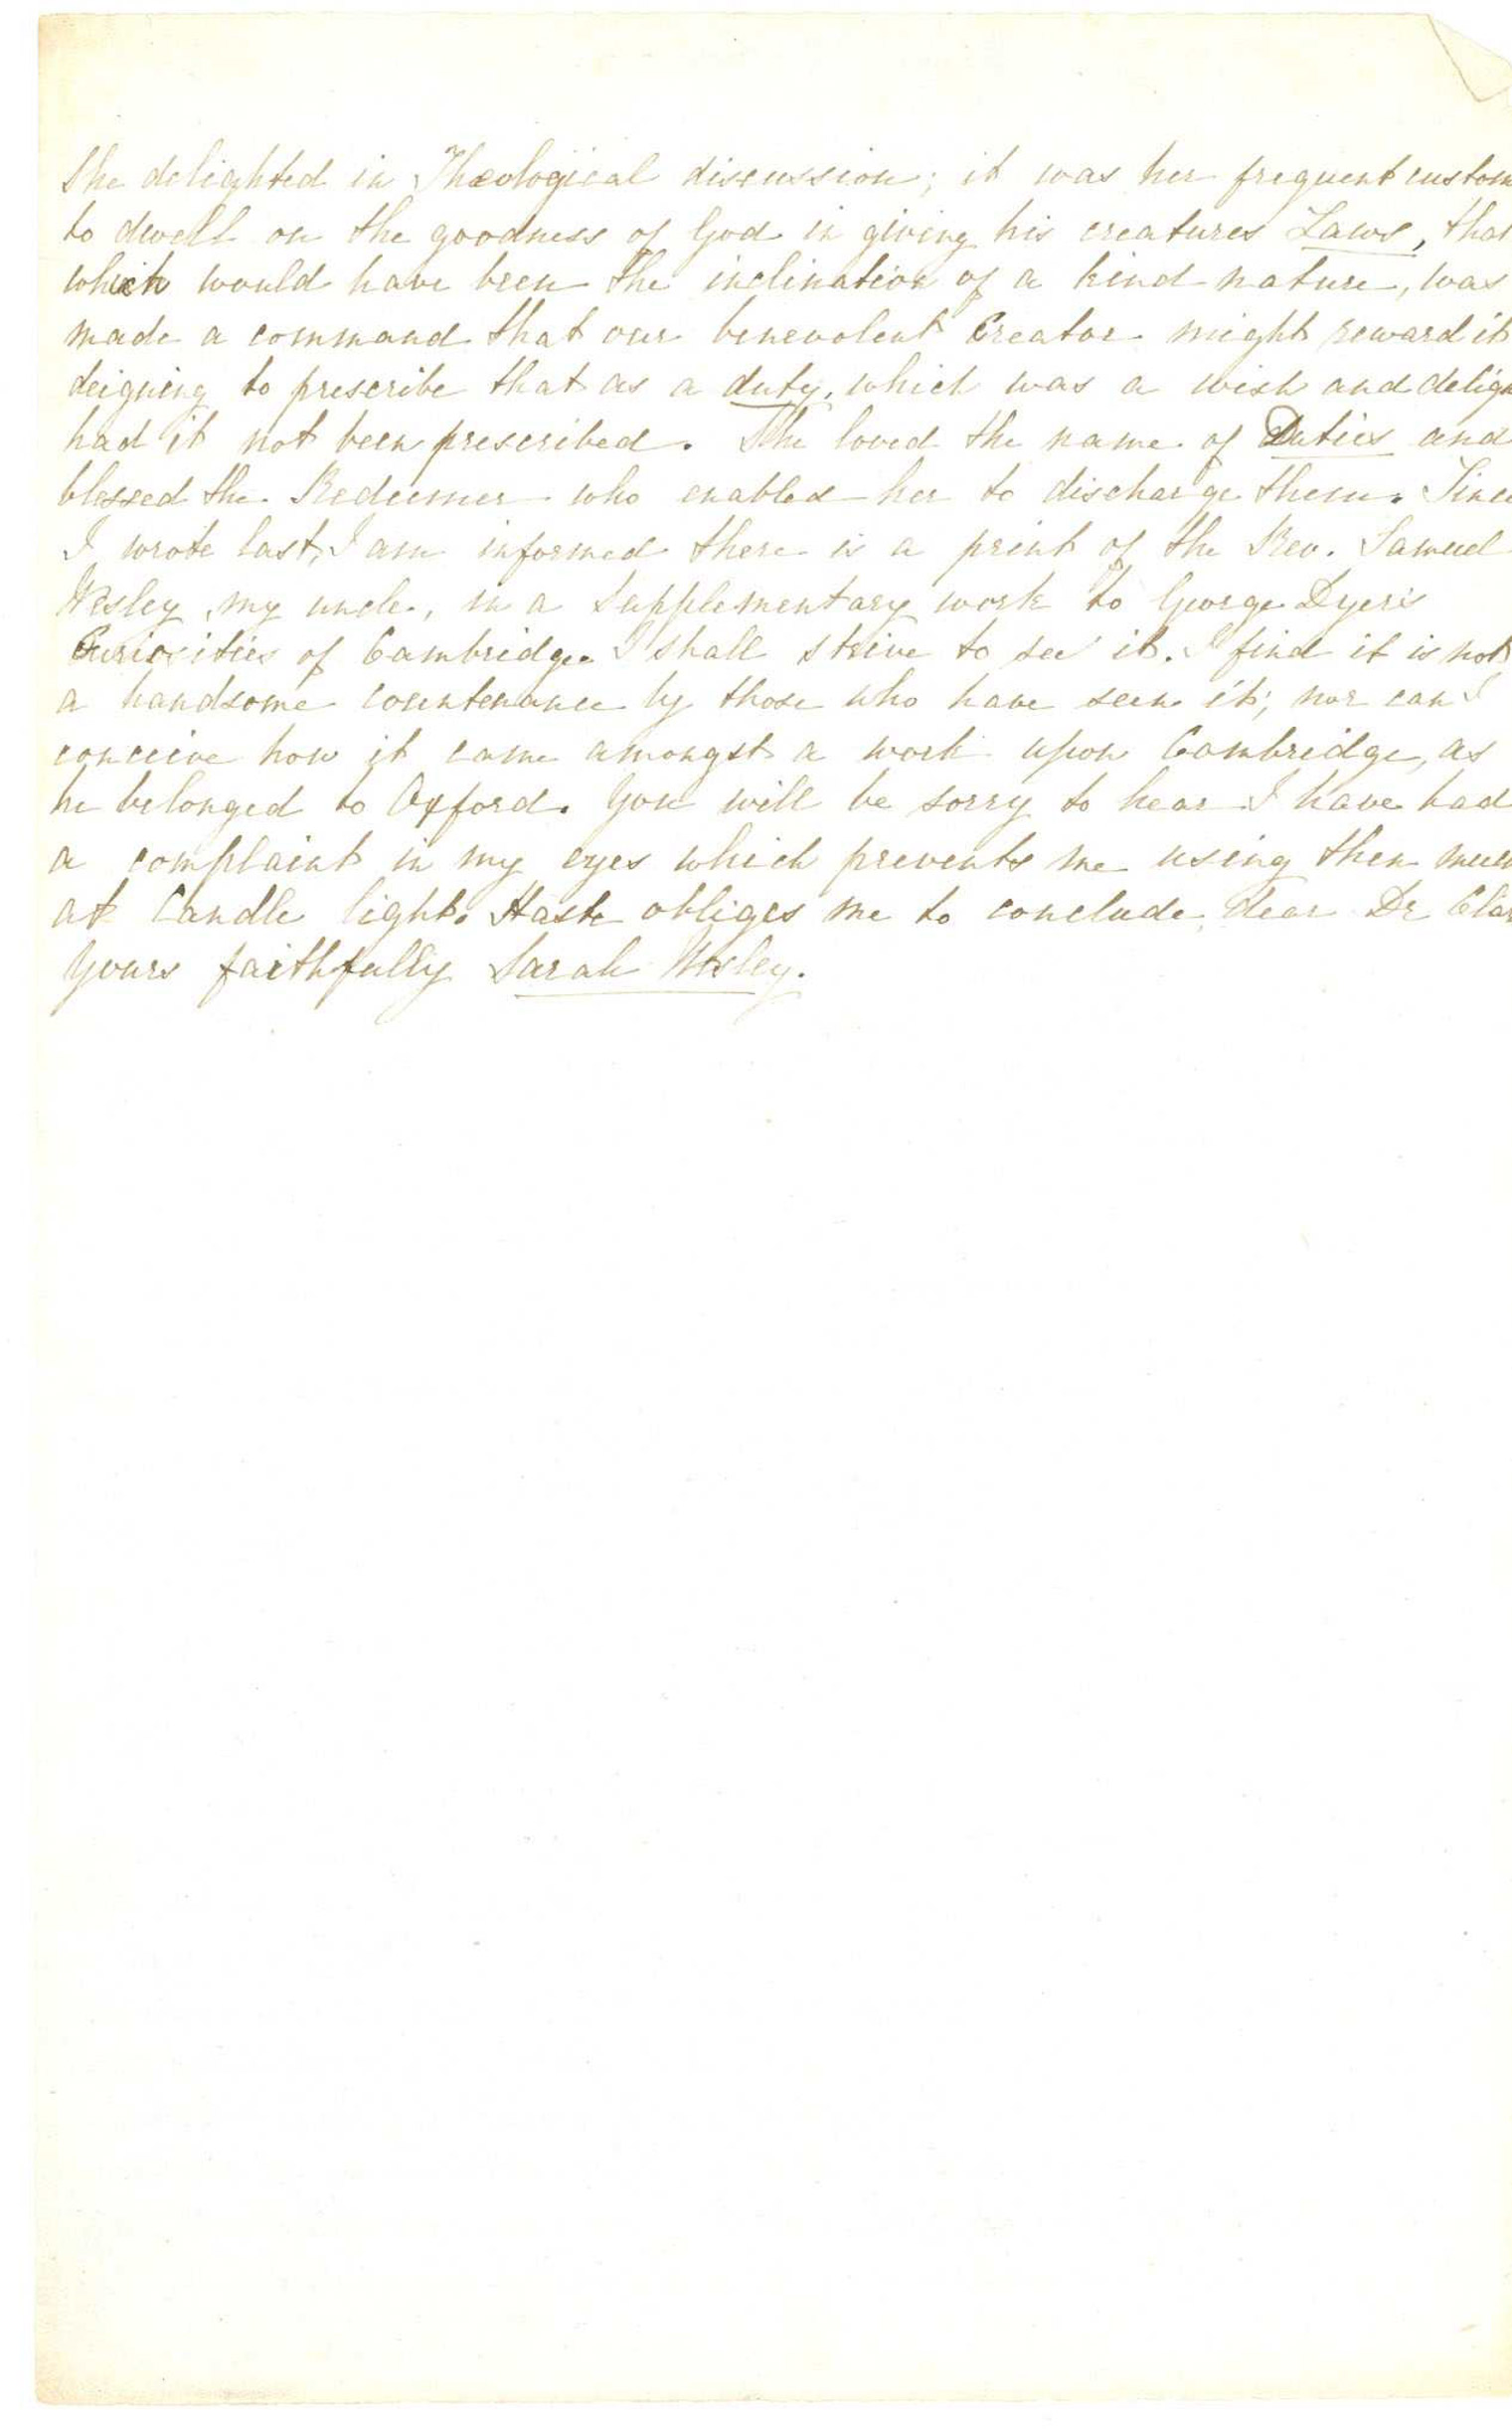 She delighted in Theological discussion; it was her frequent custom
to dwell on the goodness of God in giving his creatures Laws, that
which would have been the inclination of a kind nature, was
made a command that our benevolent Creator might reward it
deigning to prescribe that as a duty, which was a wish and deligh
had it not been prescribed. She loved the name of Duties and
blessed the Redeemer who enabled her to discharge them. Since
I wrote last, I am informed there is a print of the Rev. Samuel
Wesley, my uncle, in a Supplementary work to George Dyer's
Curiosities of Cambridge. I shall strive to see it. I find it is not
a handsome countenance by those who have seen it; nor can I
conceive how it came amongst a work upon Cambridge, as
he belonged to Oxford. You will be sorry to hear I have had
a complaint in my eyes which prevents me using them much
at Candle light. Haste obliges me to conclude, dear Dr Clar
Yours faithfully Sarah Wesley.